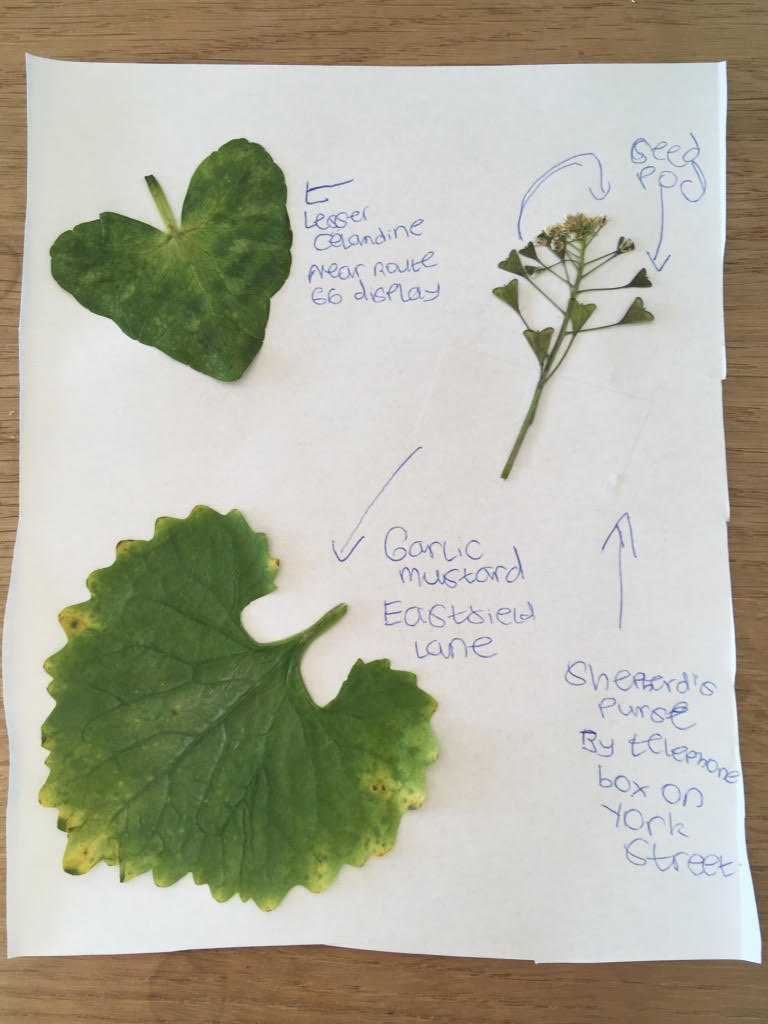 Lesser
Celandine
Near Route
66 display
Seed
Pod
Garlic
mustard
Eastfield
Lane
Shepherd's
Purse
By telephone
box on
York
Street